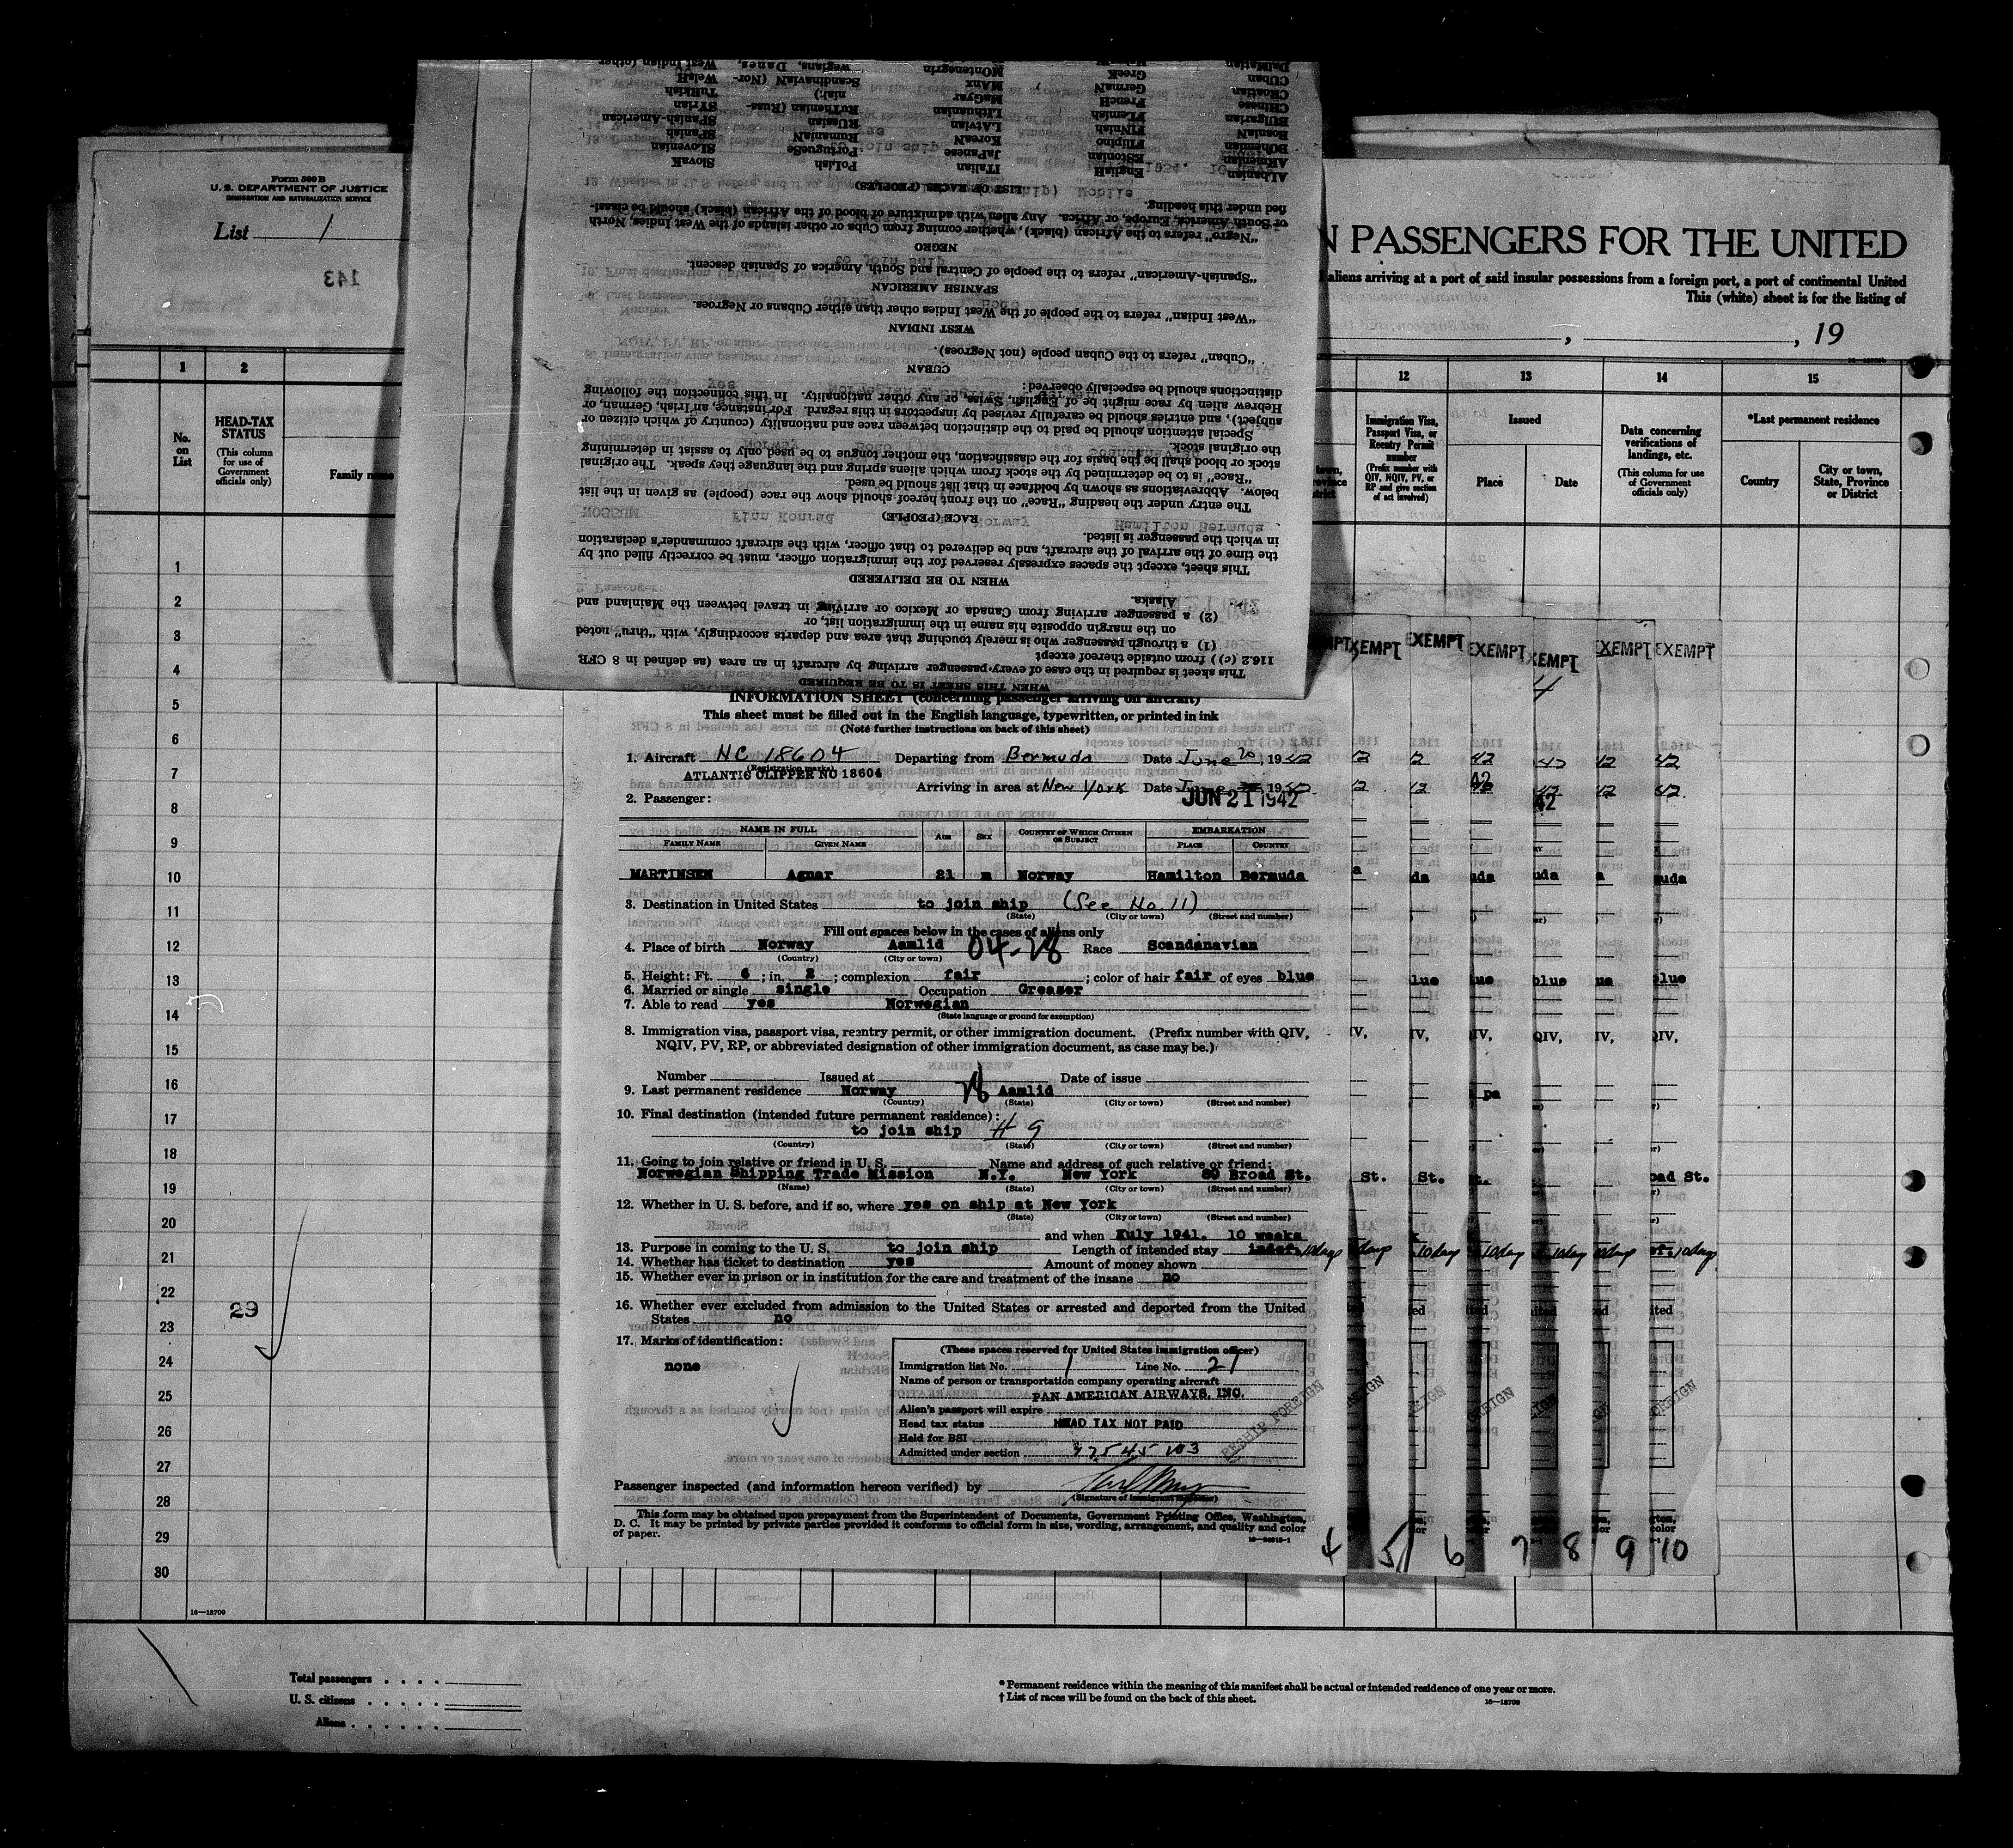 Form 500 B
U. S. DEPARTMENT OF JUSTICE
IMMIGRATION AND NATURALIZATION SERVICE
List 1
143
N PASSENGERS FOR THE UNITED
aliens arriving at a port of said insular possessions from a foreign port, a port of continental United
This (white) sheet is for the listing of
, , 19
1 2
No. on List
HEAD-TAX STATUS
(This column for use of Government officials only)
Family name
12 13 14 15
Immigration Visa, Passport Visa, or Reentry Permit number
(Prefix number with QIV, NQIV, PV, or RP and give section of act involved)
Issued
Place Date
Data concerning verifications of landings, etc.
(This column for use of Government officials only)
*Last permanent residence
Country
City or town, State, Province or District
1
2
3
4
5
6
7
8
9
10
11
12
13
14
15
16
17
18
19
20
21
22
23
24
25
26
27
28
29
30
29
16—18709
WHEN THIS SHEET IS TO BE REQUIRED
This sheet is required in the case of every passenger arriving by aircraft in an area (as defined in 8 CFR
116.2 (c)) from outside thereof except
(1) a through passenger who is merely touching that area and departs accordingly, with "thru" noted
on the margin opposite his name in the immigration list, or
(2) a passenger arriving from Canada or Mexico or arriving in travel between the Mainland and
Alaska.
WHEN TO BE DELIVERED
This sheet, except the spaces expressly reserved for the immigration officer, must be correctly filled out by
the time of the arrival of the aircraft, and be delivered to that officer, with the aircraft commander's declaration
in which the passenger is listed.
RACE (PEOPLE)
The entry under the heading "Race" on the front hereof should show the race (people) as given in the list
below. Abbreviations as shown by boldface in that list should be used.
"Race" is to be determined by the stock from which aliens spring and the language they speak. The original
stock or blood shall be the basis for the classification, the mother tongue to be used only to assist in determining
the original stock.
Special attention should be paid to the distinction between race and nationality (country of which citizen or
subject), and entries should be carefully revised by inspectors in this regard. For instance, an Irish, German, or
Hebrew alien by race might be of English, Swiss, or any other nationality. In this connection the following
distinctions should be especially observed:
CUBAN
"Cuban" refers to the Cuban people (not Negroes).
WEST INDIAN
"West Indian" refers to the people of the West Indies other than either Cubans or Negroes.
SPANISH AMERICAN
"Spanish-American" refers to the people of Central and South America of Spanish descent.
NEGRO
"Negro" refers to the African (black), whether coming from Cuba or other islands of the West Indies, North
or South America, Europe, or Africa. Any alien with admixture of blood of the African (black) should be classi-
fied under this heading.
LIST OF RACES (PEOPLES)
ALbanian EnglisH ITalian PoLish SlovaK
ARMenian EStonian JaPanese PortugueSe SLOvenian
BOhemian FIlipino KoreaN RumaniaN SPanish
BosniaN FINNish LATvian RUssian SPANish-American
BUlgarian FLemish LIThuanian RuThenian (Russ- SYrian
CHinese FrencH MaGyar niak) TuRkish
CROatian GermaN MAnx ScandinaviaN (Nor- WelsH
CUban GreeK MOntenegrin wegians, Danes, West Indian (other
DalMatian
INFORMATION SHEET (concerning passenger arriving on aircraft)
This sheet must be filled out in the English language, typewritten, or printed in ink
(Note further instructions on back of this sheet)
1. Aircraft NC 18604 Departing from Bermuda Date June 20, 1942
(Registration marks)
ATLANTIC CLIPPER NC 18604
Arriving in area at New York Date June , 1942
JUN 21 1942
2. Passenger:
NAME IN FULL AGE SEX COUNTRY OF WHICH CITIZEN OR SUBJECT EMBARKATION
FAMILY NAME GIVEN NAME PLACE COUNTRY
MARTINSEN Agnar 21 m Norway Hamilton Bermuda
3. Destination in United States to join ship (See No. 11)
(State) (City or town) (Street and number)
Fill out spaces below in the cases of aliens only
4. Place of birth Norway Aamlid 04-28 Race Scandanavian
(Country) (City or town)
5. Height: Ft. 6 ; in. 2 ; complexion fair ; color of hair fair of eyes blue
6. Married or single single Occupation Greaser
7. Able to read yes Norwegian
(State language or ground for exemption)
8. Immigration visa, passport visa, reentry permit, or other immigration document. (Prefix number with QIV,
NQIV, PV, RP, or abbreviated designation of other immigration document, as case may be.)
Number Issued at Date of issue
9. Last permanent residence Norway 28 Aamlid
(Country) (State) (City or town) (Street and number)
10. Final destination (intended future permanent residence):
to join ship # 9
(Country) (State) (City or town) (Street and number)
11. Going to join relative or friend in U. S. Name and address of such relative or friend:
Norwegian Shipping Trade Mission N.Y. New York 80 Broad St.
(Name) (State) (City or town) (Street and number)
12. Whether in U. S. before, and if so, where yes on ship at New York
(State) (City or town) (Street and number)
and when July 1941. 10 weeks
13. Purpose in coming to the U. S. to join ship Length of intended stay indef. 10 days
14. Whether has ticket to destination yes Amount of money shown
15. Whether ever in prison or in institution for the care and treatment of the insane no
16. Whether ever excluded from admission to the United States or arrested and deported from the United
States no
17. Marks of identification:
none
(These spaces reserved for United States immigration officer)
Immigration list No. 1 Line No. 21
Name of person or transportation company operating aircraft
PAN AMERICAN AIRWAYS, INC.
Alien's passport will expire
Head tax status HEAD TAX NOT PAID
Held for BSI
Admitted under section
RESHIP FOREIGN
Passenger inspected (and information hereon verified) by
(Signature of immigrant inspector)
This form may be obtained upon prepayment from the Superintendent of Documents, Government Printing Office, Washington,
D. C. It may be printed by private parties provided it conforms to official form in size, wording, arrangement, and quality and color
of paper.
EXEMPT EXEMPT EXEMPT EXEMPT EXEMPT EXEMPT
4 5 6 7 8 9 10
Total passengers
U. S. citizens
Aliens
* Permanent residence within the meaning of this manifest shall be actual or intended residence of one year or more.
† List of races will be found on the back of this sheet.
16—18709